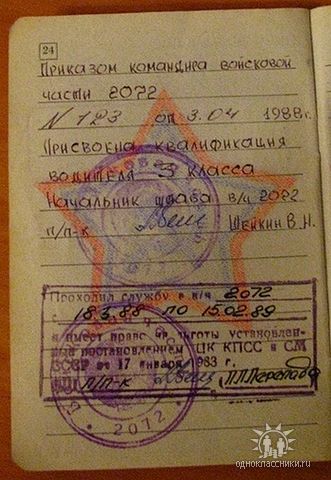 24
Приказом командира войсковой
части 2072
N 123 от 3.04 1988г.
Присвоена квалификация
водителя 3 класса
Начальник штаба в/ч 2072
п/п-к Шейкин В.Н.
Проходил службу в в/ч 2072
с 18.3.88 по 15.02.89
и имеет право на льготы установлен-
ные постановлением ЦК КПСС и СМ
СССР от 17 января 1983 г.
П/П-К
2072
2072
одноклассники.ru